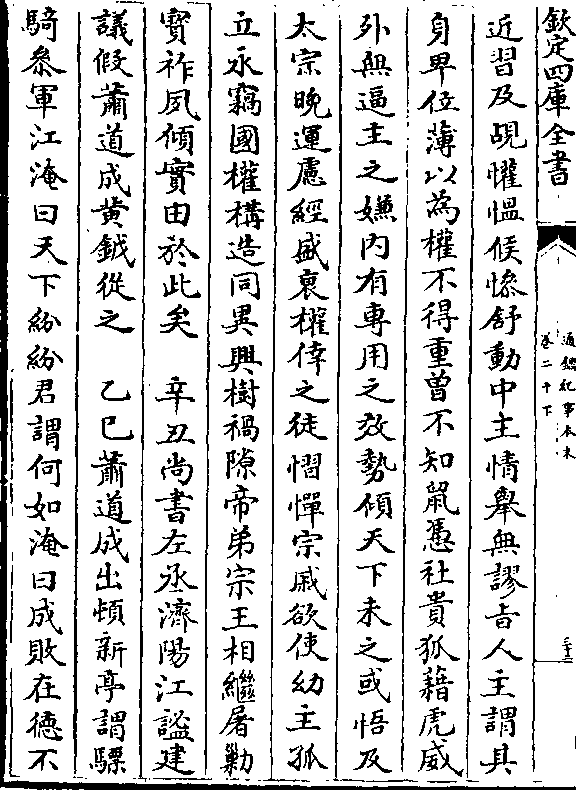 欽定四庫全書
通鑑紀事本末
卷二十下
三十三
近習及覘懽愠候慘舒動中主情舉無謬㫖人主謂其
身卑位薄以為權不得重曾不知鼠憑社貴狐藉虎威
外無逼主之嫌内有專用之效勢傾天下未之或悟及
太宗晩運慮經盛衰權倖之徒慴憚宗戚欲使幼主孤
立永竊國權構造同異興樹禍隙帝弟宗王相繼屠勦
寳祚夙傾實由於此矣　辛丑尚書左丞濟陽江謐建
議假蕭道成黄鉞從之　乙巳蕭道成出頓新亭謂驃
騎參軍江淹曰天下紛紛君謂何如淹曰成敗在德不